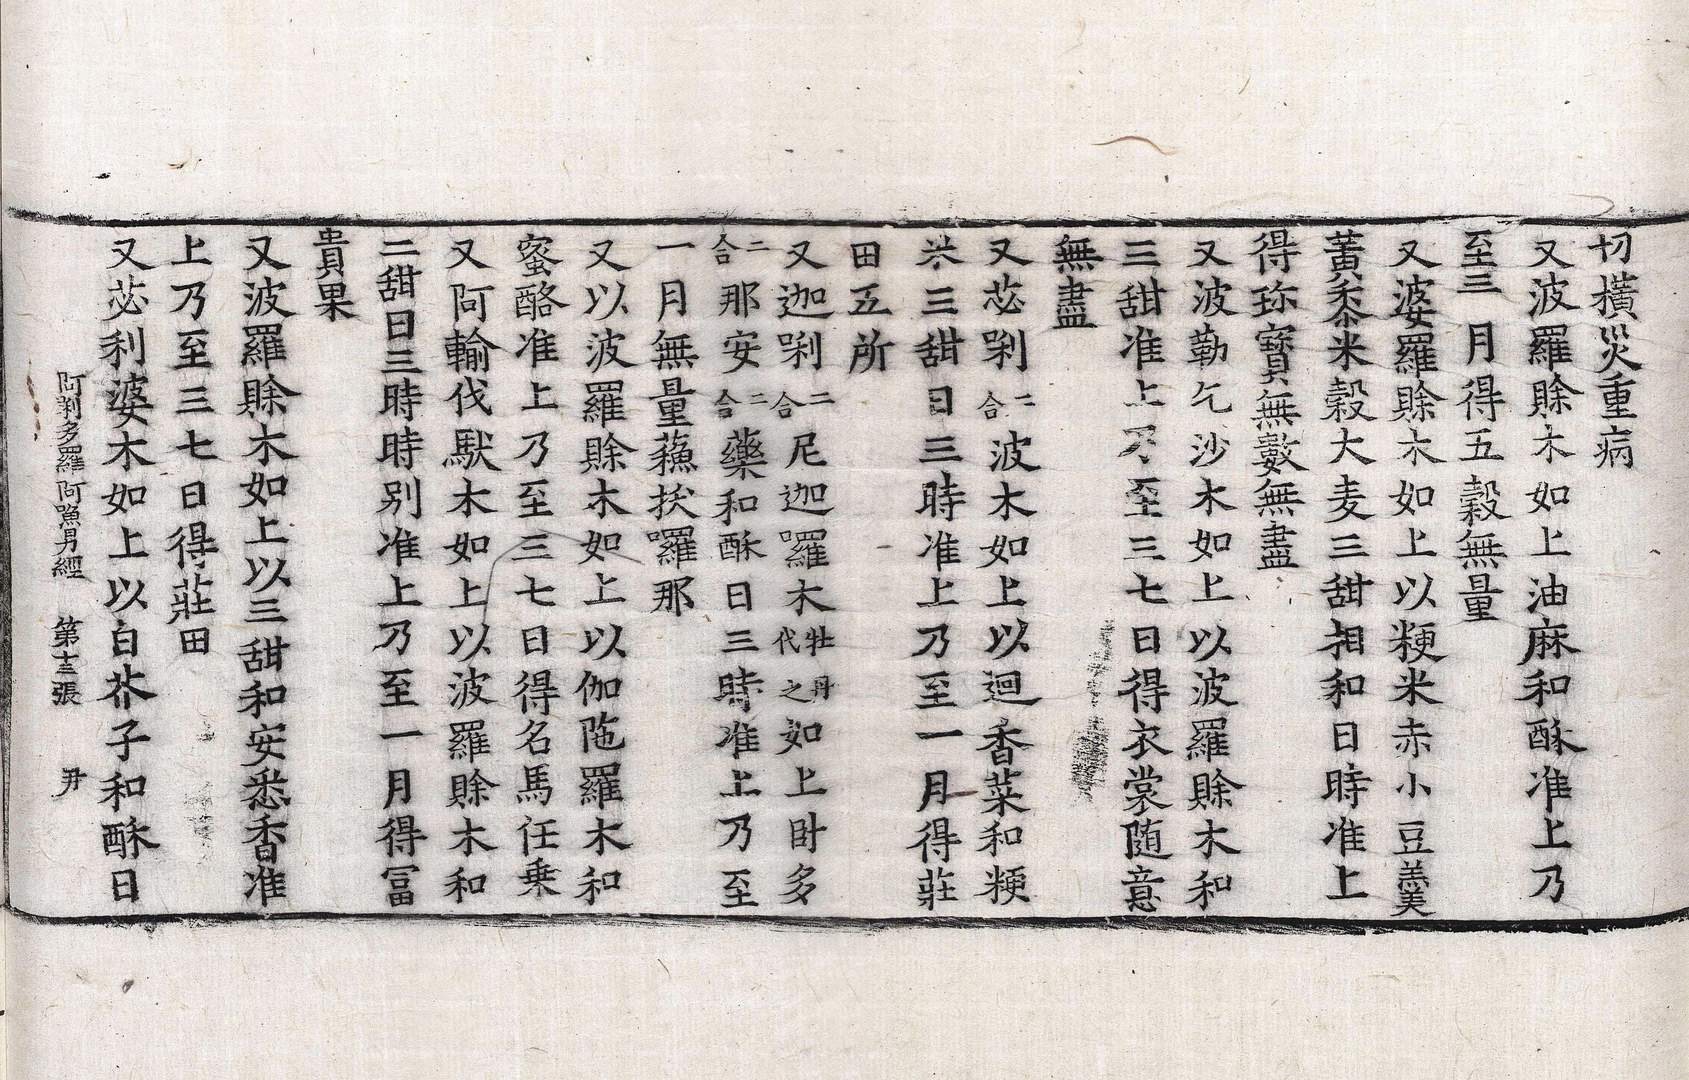 切橫災重病
又波羅賖木如上油麻和酥准上乃
至三月得五穀無量
又婆羅賖木如上以粳米赤小豆羹
黃黍米穀大麦三甜相和日時准上
得珎寶無數無盡
又波勒乞沙木如上以波羅賖木和
三甜准上乃至三七日得衣裳随意
無盡
又苾㘑二合波木如上以迴香菜和粳
米三甜日三時准上乃至一月得莊
田五所
又迦㘑二合尼迦囉木牡丹代之如上酎多
二合那安二合藥和酥日三時准上乃至
一月無量蘓扷囉那
又以波羅賖木如上以伽陁羅木和
蜜酪准上乃至三七日得名馬任乗
又阿輸伐馱木如上以波羅賖木和
二甜日三時時别准上乃至一月得冨
貴果
又波羅賖木如上以三甜和安悉香准
上乃至三七日得莊田
又苾利婆木如上以白芥子和酥日
阿唎多羅阿嚕男經 第十三張 尹